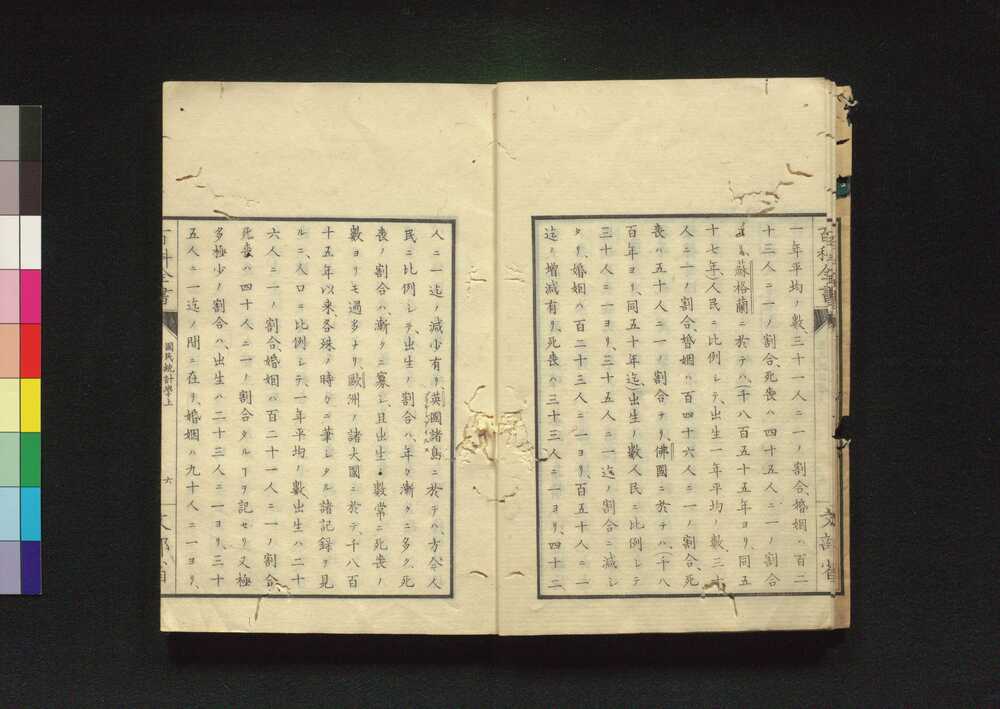 一年平均ノ數、三十一人ニ一ノ割合、婚姻ハ百二
十三人ニ一ノ割合、死喪ハ四十五人ニ一ノ割合
蘇格蘭ニ於テハ(千八百五十五年ヨリ、同五
十七年)人民ニ比例シテ、出生一年平均ノ數、三十
人ニ一ノ割合、婚姻ハ百四十六人ニ一ノ割合、死
喪ハ五十人ニ一ノ割合ナリ、佛國ニ於テハ、(千八
百年ヨリ、同五十年迄)出生ノ數人民ニ比例シテ
三十人ニ一ヨリ、三十五人ニ一迄ノ割合ニ減シ
タリ、婚姻ハ百二十三人ニ一ヨリ、百五十八人ニ一
迄ノ増減有リ、死喪ハ三十三人ニ一ヨリ、四十二
百科全書
文部省
人ニ一迄ノ減少有リ英國諸島ニ於テハ、方今人
民ニ比例シテ、出生ノ割合ハ、年々漸クニ多ク、死
喪ノ割合ハ、漸クニ寡シ、且出生ノ數常ニ死喪ノ
數ヨリモ過多ナリ、歐洲ノ諸大國ニ於テ、千八百
十五年以来、各殊ノ時々ニ筆シタル諸記録ヲ見
ルニ、人口ニ比例シテ、一年平均ノ數出生ハ二十
六人ニ一ノ割合、婚姻ハ百二十一人ニ一ノ割合、
死喪ハ四十人ニ一ノ割合タルヿヲ記セリ又極
多極少ノ割合ハ、出生ハ二十三人ニ一ヨリ、三十
五人ニ一迄ノ間ニ在リ、婚姻ハ九十人ニ一ヨリ、
百科全書
國民統計學上
六
文部省